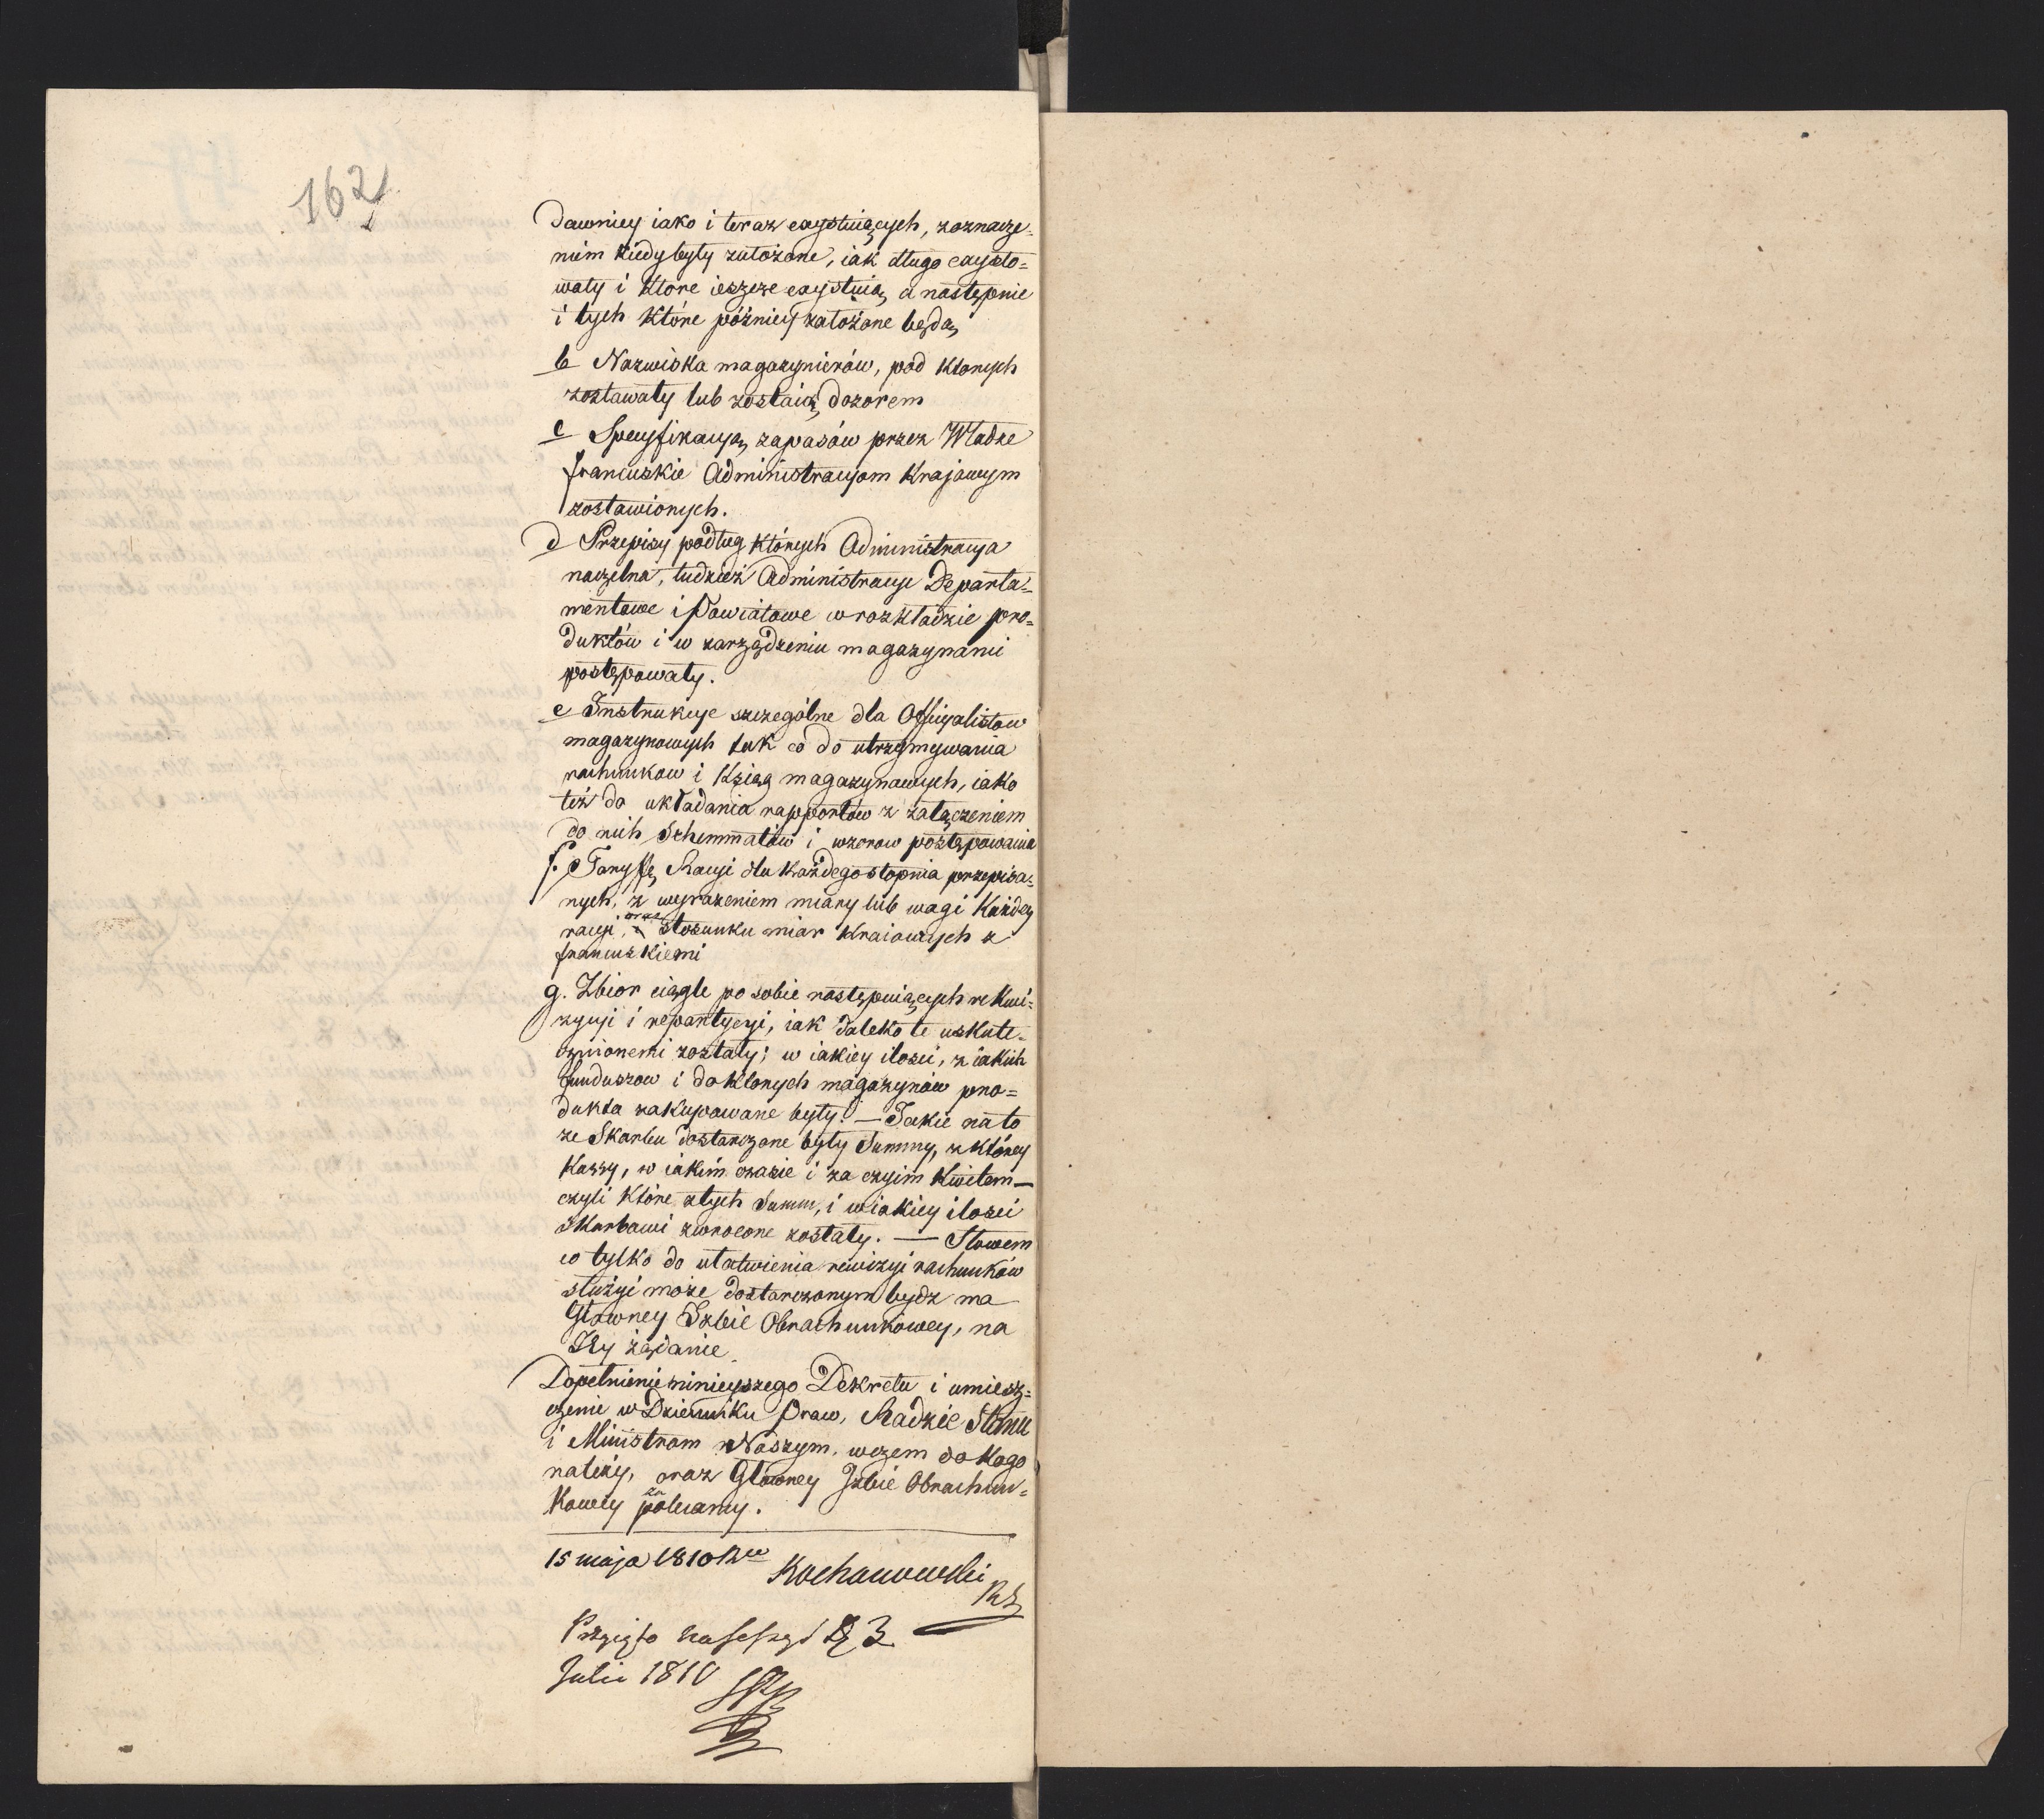 162
dawniey iako i teraz exystuiących, zoznacze=
nim kiedy były założone, iak długo exysto=
wały i które ieszcze exystuią, a następnie
i tych które późniey założone będą,
b Nazwiska magazynierów, pod których
zostawały lub zostaią dozorem
c Specyfikacyą zapasów przez Władze
francuskie Administracyom Krajowym
zostawionych.
d Przepisy podług których Administracya
naczelna, tudzież Administracye Departa=
mentowe i Powiatowe w rozkładzie pro=
duktów i w zarządzeniu magazynami
postępowały.
e Instrukcye szczególne dla Officyalistow
magazynowych tak co do utrzymywania
rachunkow i Xsiąg magazynowych, iako
też do układania rapportów z załączeniem
do nich Schemmatów i wzorow postępowania
f. Taryffę Racyi dla każdego stopnia przepisa=
nych, z wyrażeniem miary lub wagi Każdey
racyi, oraz stosunku miar Kraiowych z
francuzkiemi
g. Zbior ciągle po sobie następuiących rekwi=
zycyi i repartycyi, iak daleko te uskute=
cznionemi zostały; w iakiey ilości, z iakich
funduszow i do których magazynów pro=
dukta zakupowane były. — Jakie na to
ze Skarbu dostarczone były Summy, z którey
Kassy, w iakim czasie i za czyim Kwitem —
czyli które z tych Summ, i w iakiey ilości
Skarbowi zwrocone zostały. — Słowem
co tylko do ułatwienia rewizyi rachunków
służyć może dostarczonym bydz ma
Głowney Izbie Obrachunkowey, na
Jey żądanie.
Dopełnienie ninieyszego Dekretu i umiesz=
czenie w Dzienniku Praw, Radzie Stanu
i Ministrom Naszym, wczem do kogo
należy, oraz Głowney Izbie Obrachun=
kowey polecamy.
15 maja 1810 Rku
Kochanowski
Przyięto na Sessyi 3
Julii 1810